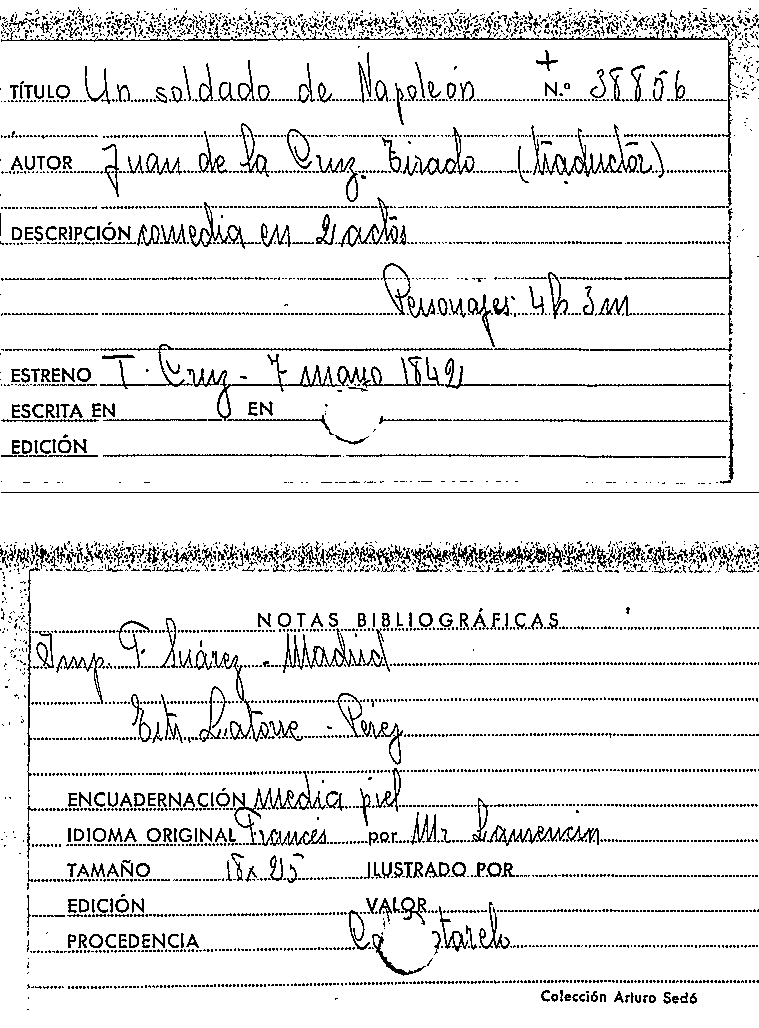 +
TÍTULO Un soldado de Napoleón N.º 38856
AUTOR Juan de la Cruz Tirado (traductor)
DESCRIPCIÓN comedia en 2 actos
Personajes: 4h 3m
ESTRENO T. Cruz - 7 mayo 1842
ESCRITA EN EN
EDICIÓN
NOTAS BIBLIOGRÁFICAS
Imp. F. Suárez - Madrid
Latorre - Pérez
ENCUADERNACIÓN media piel
IDIOMA ORIGINAL Francés por Mr Laurencin
TAMAÑO 18x25 ILUSTRADO POR
EDICIÓN VALOR
PROCEDENCIA
Colección Arturo Sedó